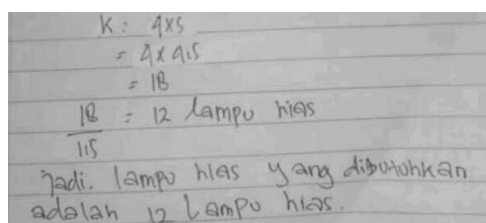 K : 4x5
= 4 x 4.5
= 18
18 = 12 lampu hias
1.5
Jadi. lampu hias yang dibutuhkan
adalah 12 Lampu hias.